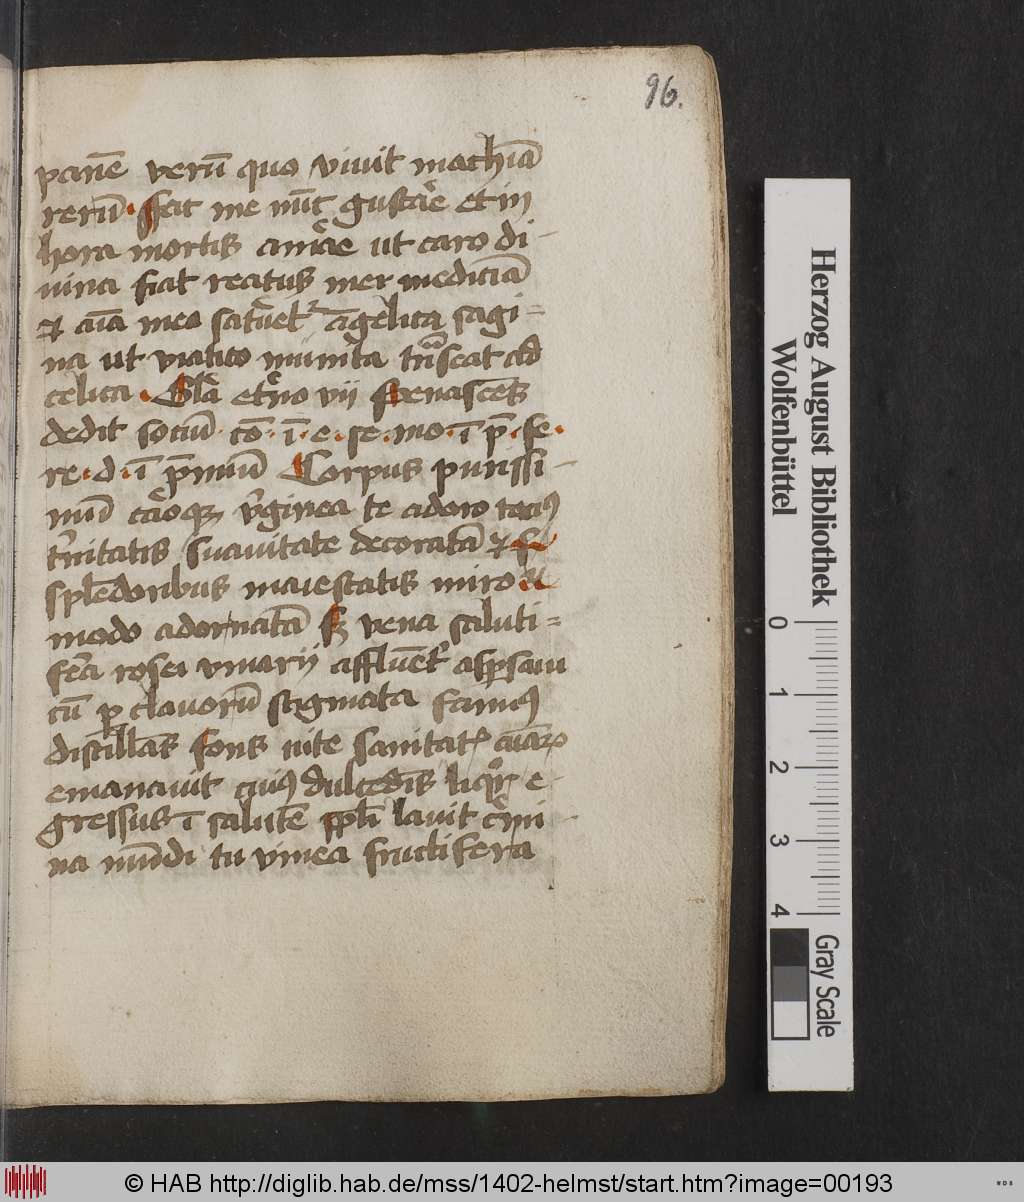 96.
panē verū quo vivit mach̄ia
rerū. ffac me nūc gustar̄e et in
hora mortis amar̄e ut caro di-
uina fiat reatus mei mediciā
et aīa mea satiēt angelica sagi=
na ut viatico munita trāseat ad
celica. Gl̄a et̄no vii Se nascēs
dedit sociū. cō. ī. e. se. mo. ī p̄. se.
re. d. ī p̄miū Corpus purissi-
mū caroq; v̄ginea te adoro tociꝰ
t̄nitatis suauitate decoratā et
splēdoribus maiestatis miro
modo adornatā vena saluti=
fēa rosei vinarij affluēt
cū p clavorū stigmata
distillās fons uite sanitatꝭ
emanauit cuiꝰ dulcedīs liqr̄ e-
gressus ī salutē ppl̄i lauit c̄mi-
na mūdi tu vinea fructifera
Herzog August Bibliothek
Wolfenbüttel
0 1 2 3 4
Gray Scale
© HAB http://diglib.hab.de/mss/1402-helmst/start.htm?image=00193